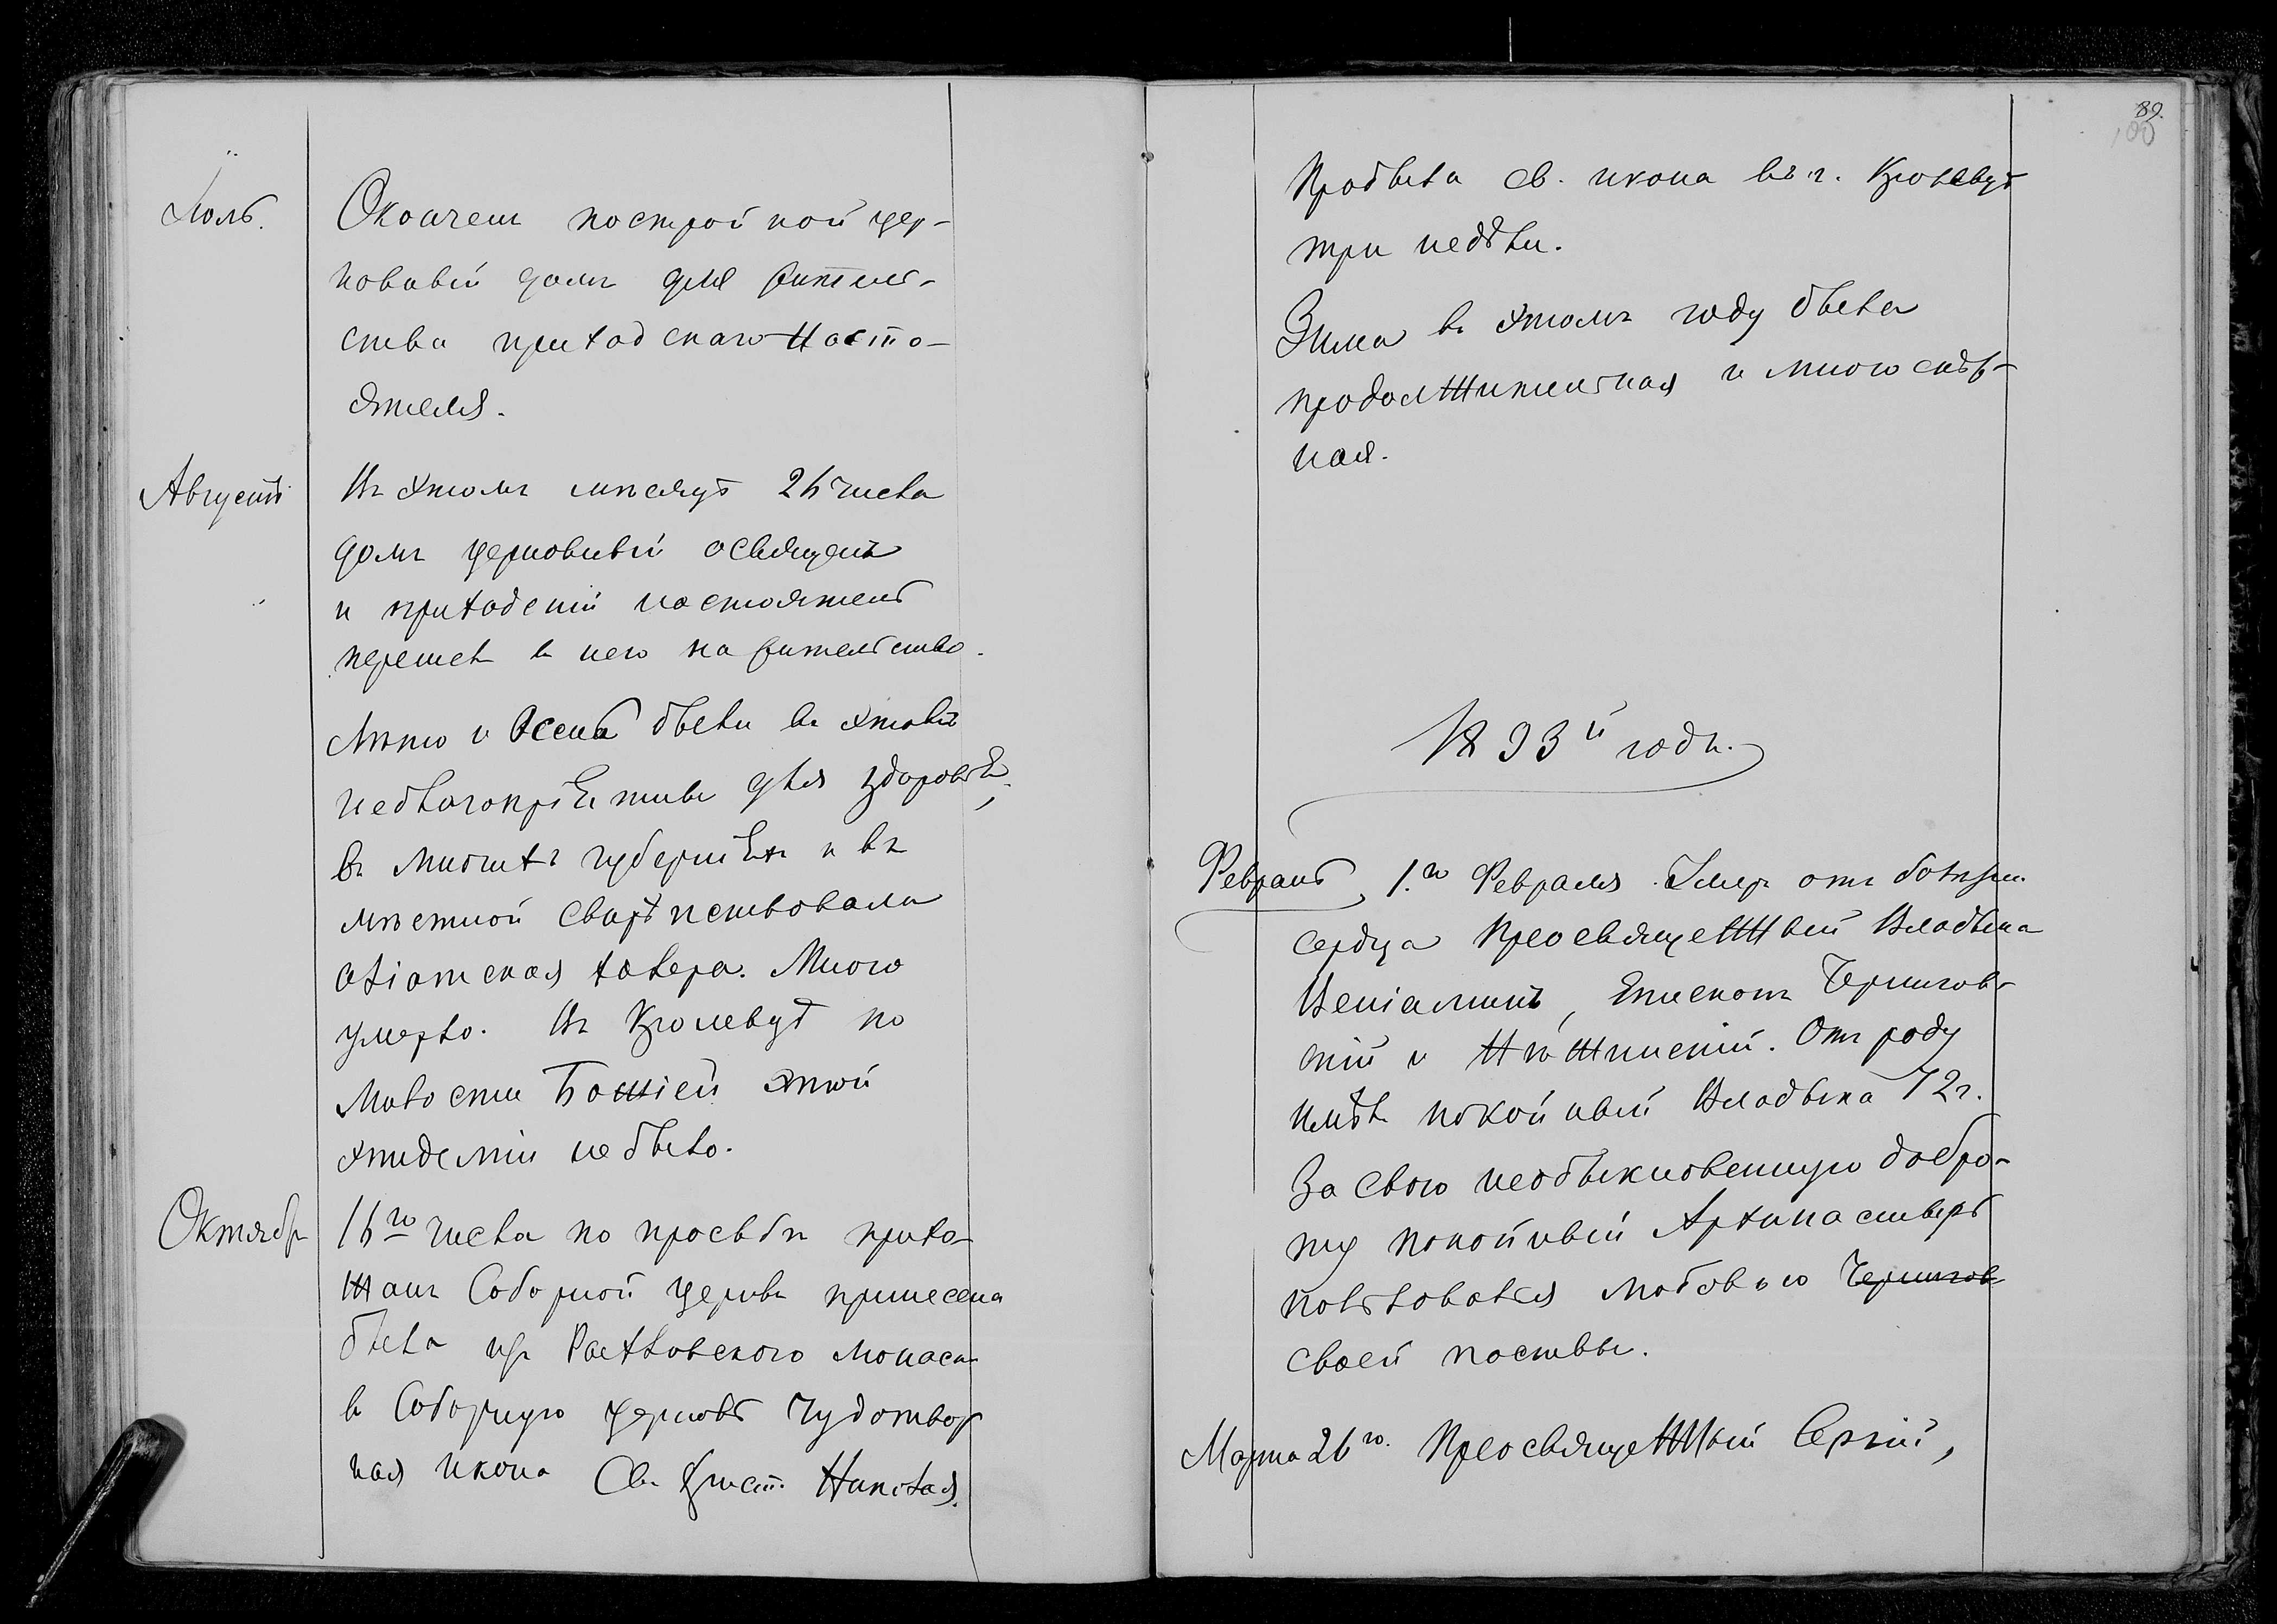 Іюль.
Оконченъ постройкой цер-
ковный домъ для житель-
ства приходскаго Насто-
ятеля.
Августъ
Въ этомъ мѣсяцѣ 26 числа
домъ церковный освященъ
и приходскій настоятель
перешелъ въ него на жительство.
Лѣто и Осень были въ этовъ
неблагопріятны для здоровья;
въ многихъ губерніяхъ и въ
мѣстной свирѣпствовала
азіатская холера. Много
умерло. Въ Кролевцѣ по
милости Божіей этой
эпидеміи не было.
Октябрь
16го числа по просьбѣ прихо-
жанъ Соборной церкви принесена
была изъ Рыхловскаго монаст.
въ Соборную церковь чудотвор
ная икона Св. Христ. Николая.
89.
100
Пробыла св. икона въ г. Кролевцѣ
три недѣли.
Зима въ этомъ году была
продолжительная и многоснѣж-
ная.
1893й годъ.
Февраль
1.го Февраля. Умеръ отъ болѣзни
сердца Преосвященный Владыка
Веніаминъ, Епископъ Чернигов-
скій и Нѣжинскій. Отъ роду
имѣлъ покойный Владыка 72 г.
За свою необыкновенную добро-
ту покойный Архипастырь
пользовался любовью Чернигов
своей паствы.
Марта 26го. Преосвященный Сергій,